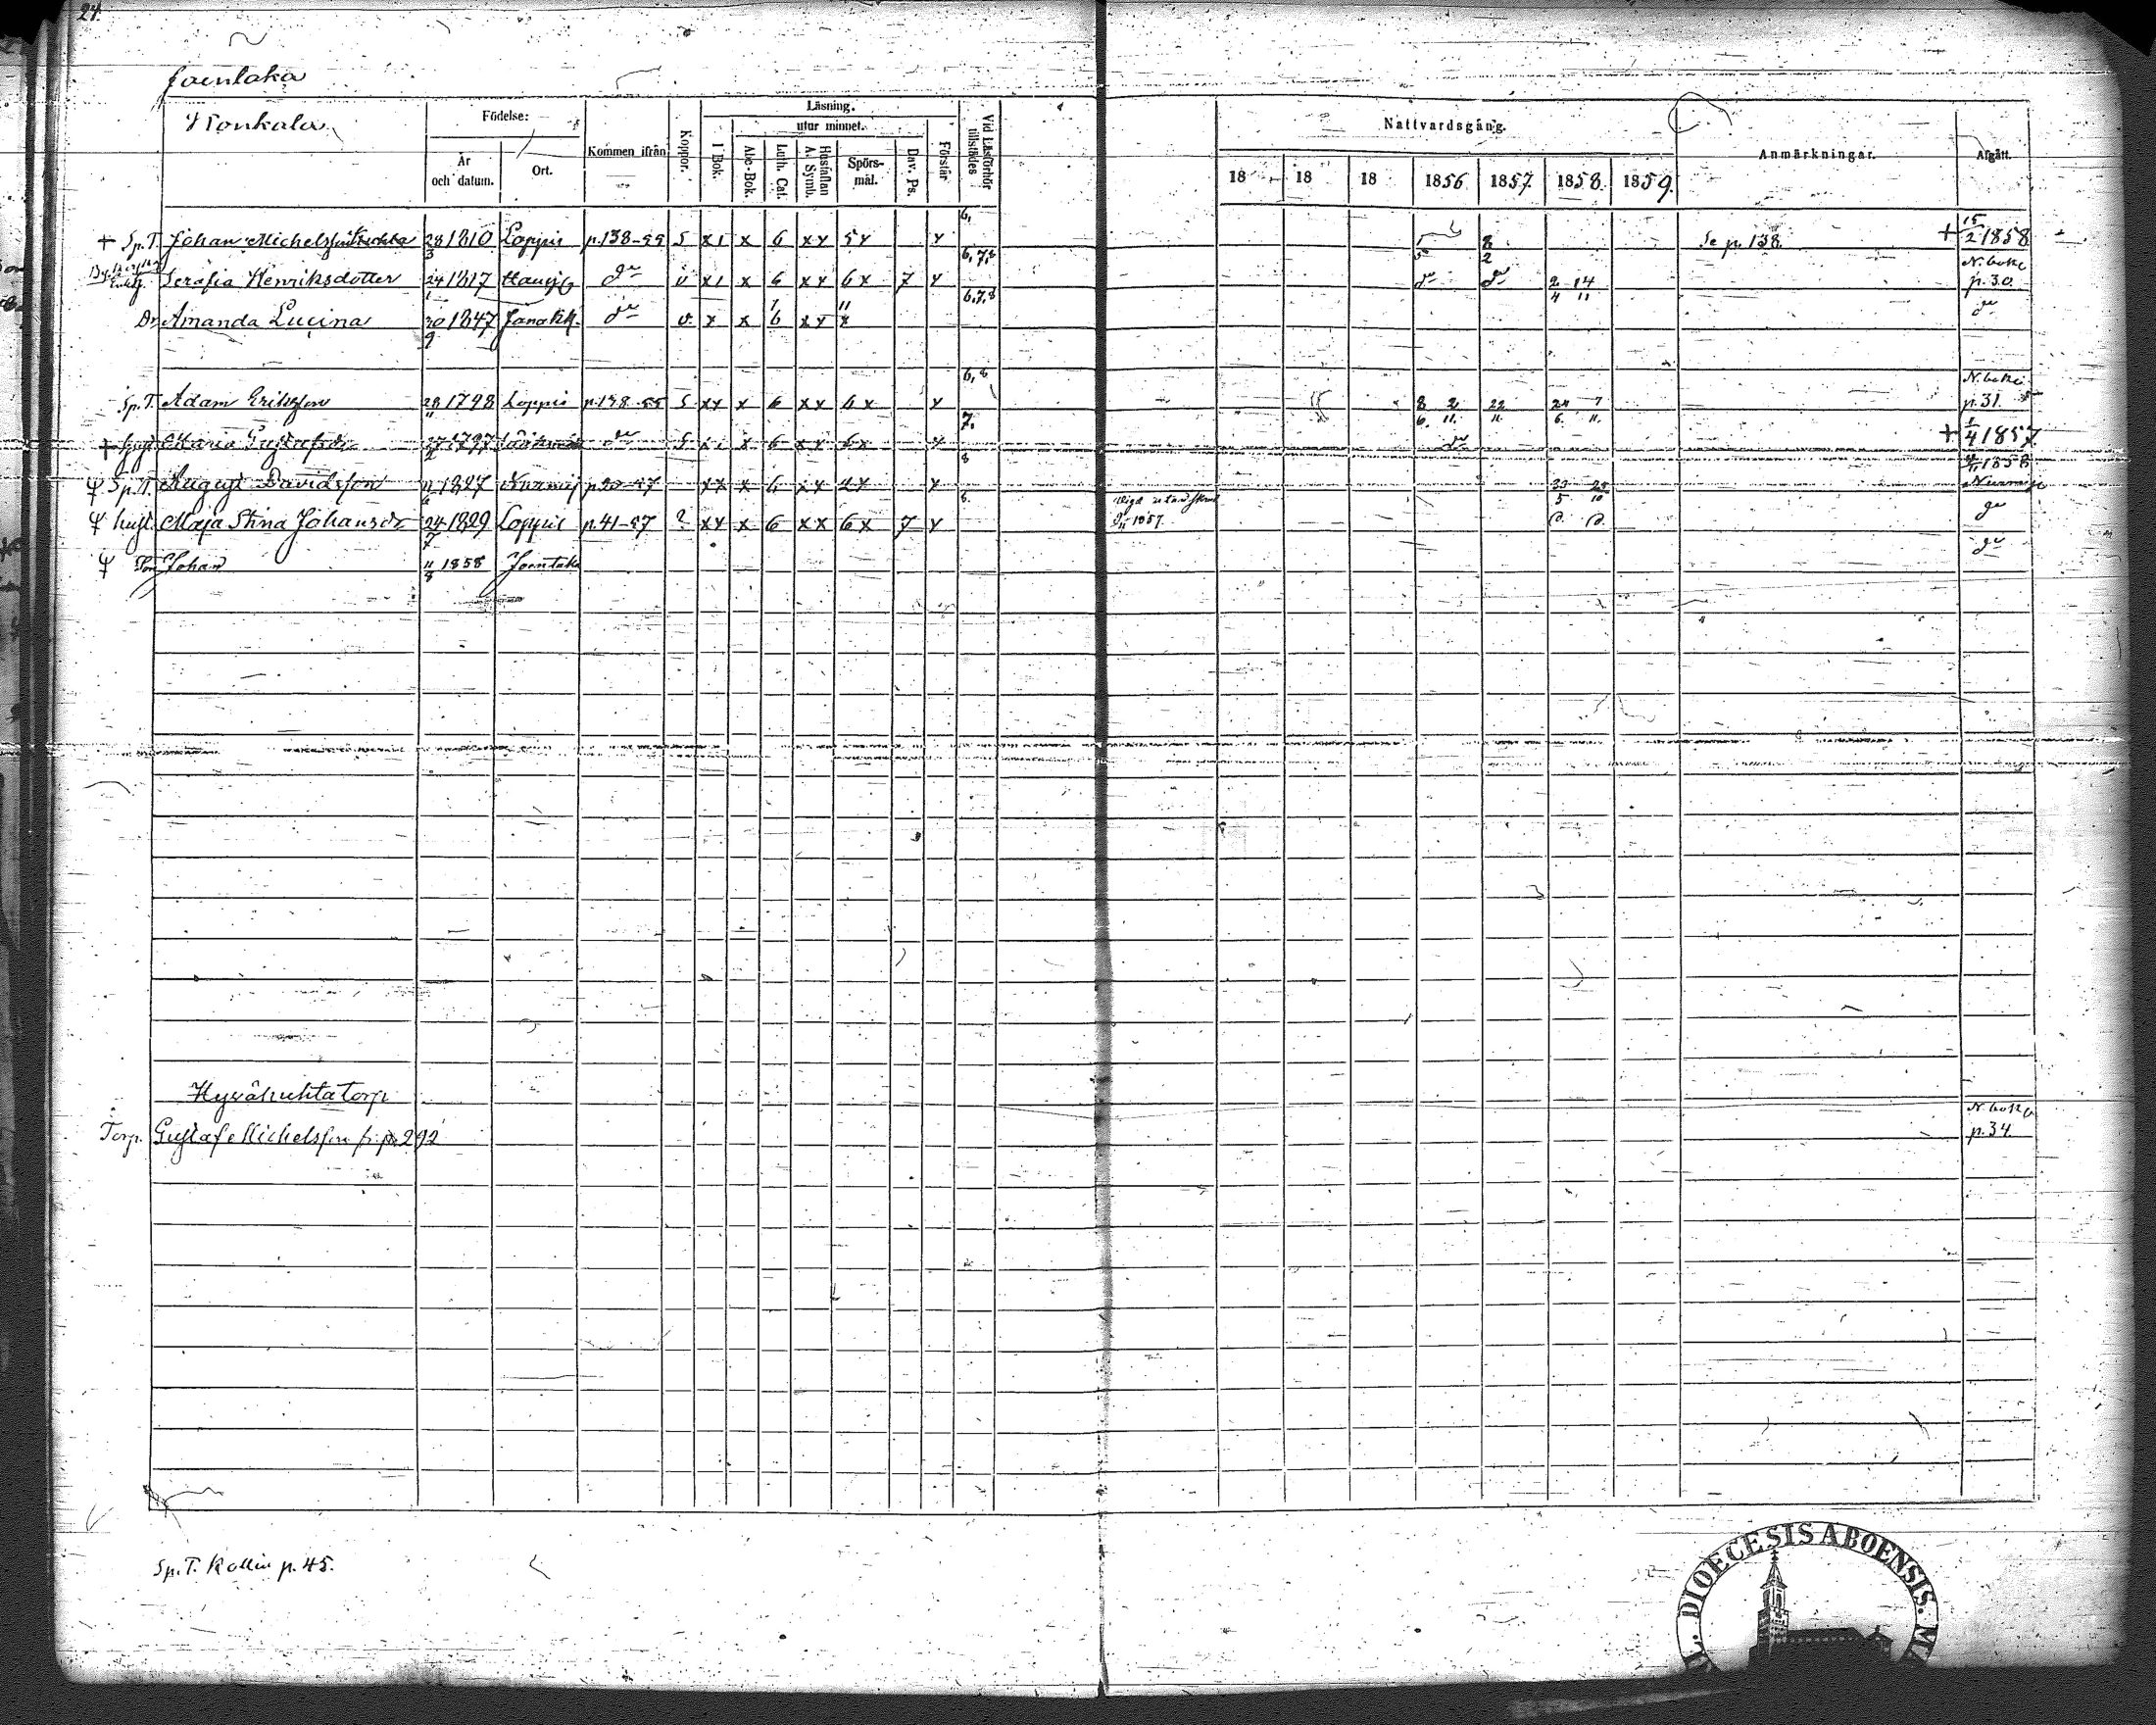 24.
Joentaka
Konkala
Födelse: Kommen ifrån Koppor. Läsning. Vid Läsförhör tillstädes Nattvardsgång. Anmärkningar. Afgått.
År och datum. Ort. I Bok. utur minnet. Förstår
Abc-Bok. Luth. Cat. Hustaflan A. Symb. Spörs-mål. Dav. Ps.
18 18 18 1856 1857. 1858. 1859.
+ Sp.T. Johan Michelsson 28/3 1810 Loppis p.138-55 S x1 x 6 xx 5x x 6, 8/2 Se p. 138. + 15/2 1858
Enk. Serafia Henriksdotter 24/1 1817 Hausj. do v x1 x 6 xx 6x 7 x 6,7,8 do do 2/4 14/11 N. boke p. 30.
Dr Amanda Lucina 30/9 1847 Janakk. do v. x x 6 xx x 6,7,8 do
Sp.T. Adam Eriksson 28/11 1798 Loppis p.138-55 S xx x 6 xx 6x x 6,8 8/6. 2/11. 22/11. 24/6. 7/11. N. boke p. 31.
+ Hust. Maria Gustafsdr 27/2 1797 do S x1 x 6 xx 6x x 7. do + 1/4 1857
Sp.T. August Davidsson 1827 Nurmij p.20-57 xx x 6 xx 2x x 8 23/5 25/10 1858 Nurmijr
hust. Maja Stina Johansdr 24/7 1829 Loppis p.41-57 ? xx x 6 xx 6x 7 x 8. 1857. do
Son Johan 11/8 1858 Joentaka do
Hyvähuhta torp
Torp. Gustaf Michelsson fr. p. 292 N. boke p. 34.
Sp.T. Kollin p. 45.
DIOECESIS ABOENSIS.